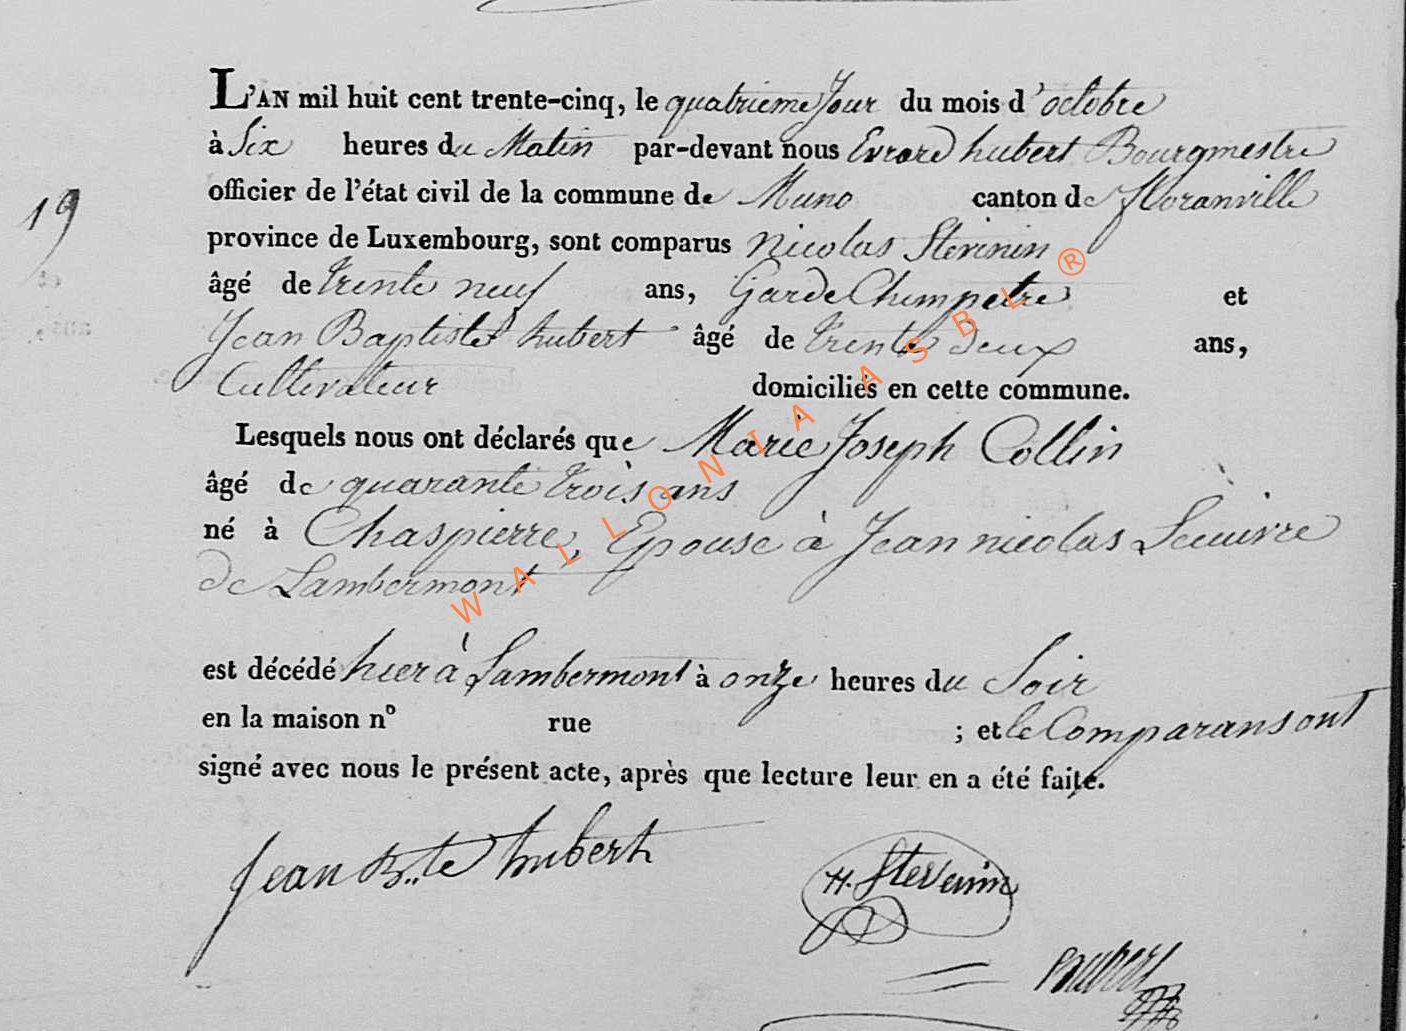 L'AN mil huit cent trente-cinq, le quatrieme Jour du mois d'octobre
à Six heures du Matin par-devant nous Evrard hubert Bourgmestre
officier de l'état civil de la commune de Muno canton de floranville
19
province de Luxembourg, sont comparus Nicolas Stevenin
âgé de trente neuf ans, Garde Champetre et
Jean Baptiste hubert âgé de trente deux ans,
Cultivateur domiciliés en cette commune.
Lesquels nous ont déclarés que Marie Joseph Collin
âgé de quarante trois ans
né à Chaspierre, Epouse à Jean nicolas
de Lambermont
est décédé hier à Lambermont à onze heures du Soir
en la maison nº rue ; et le Comparans ont
signé avec nous le présent acte, après que lecture leur en a été faite.
Jean Bte hubert
Stevenin
WALLONIA ASBL ®